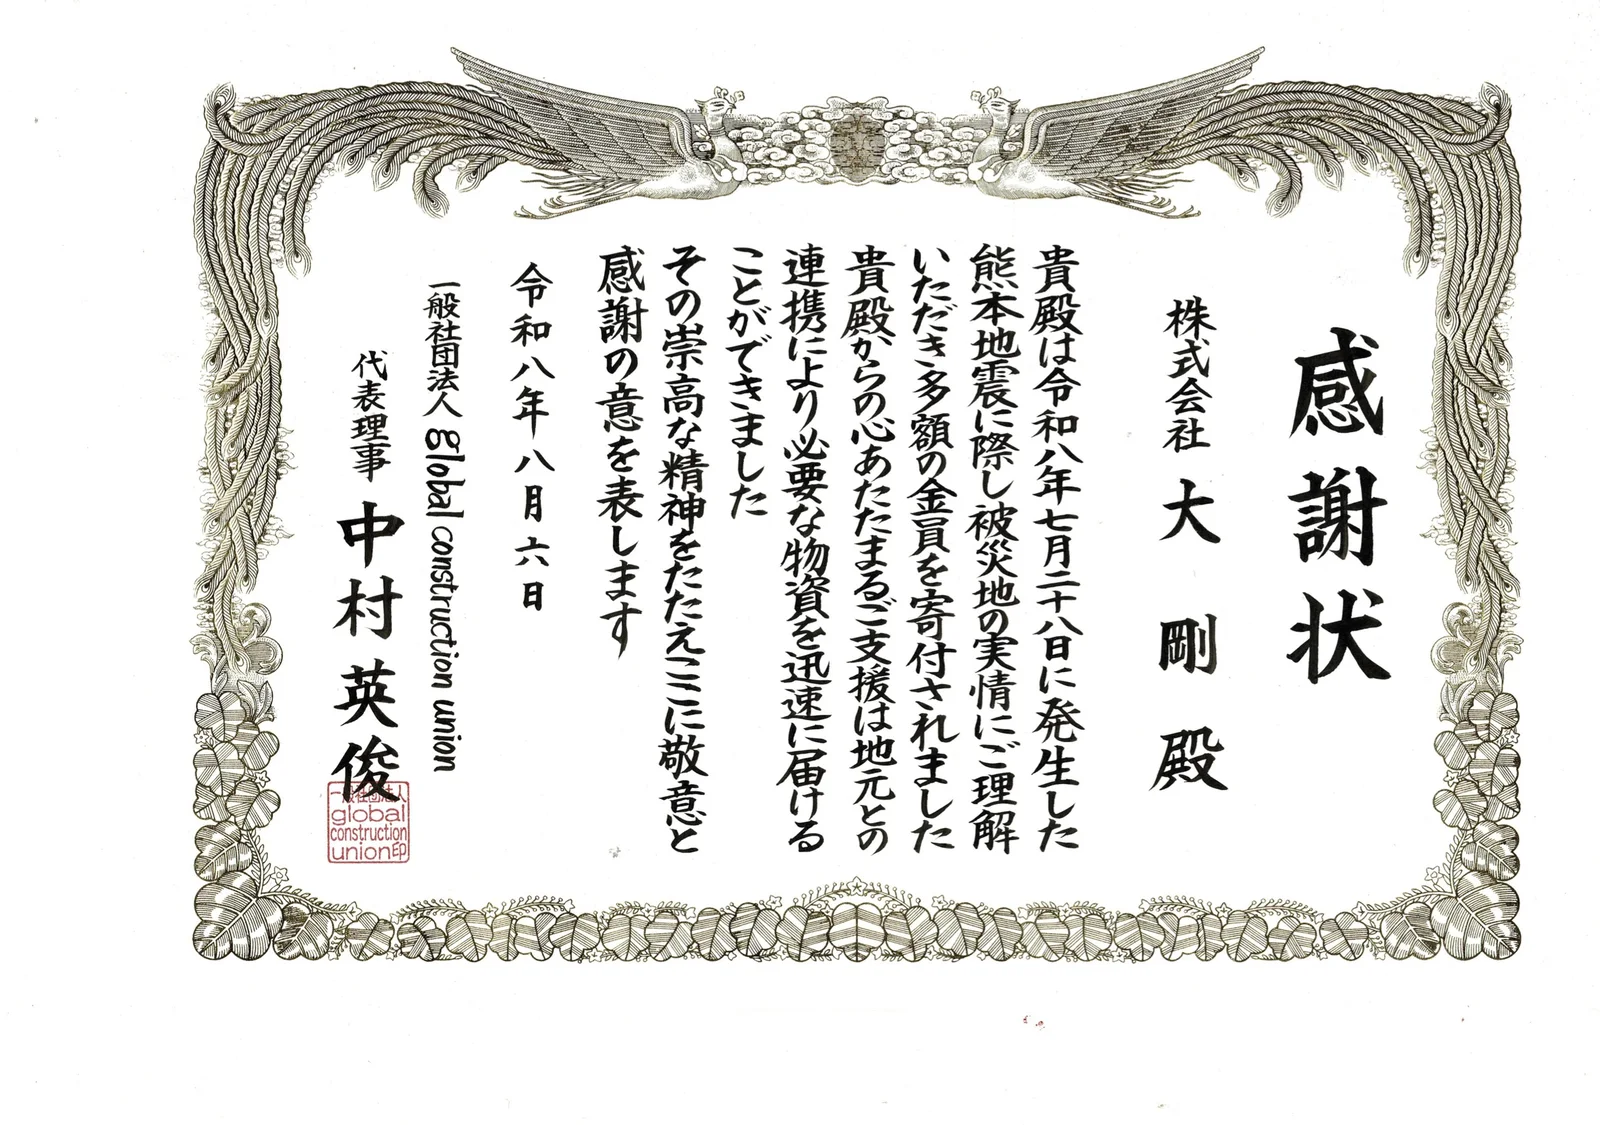 感謝状
株式会社 大剛殿
貴殿は令和八年七月二十八日に発生した
熊本地震に際し被災地の実情にご理解
いただき多額の金員を寄付されました
貴殿からの心あたたまるご支援は地元との
連携により必要な物資を迅速に届ける
ことができました
その崇高な精神をたたえここに敬意と
感謝の意を表します
令和八年八月六日
一般社団法人 global construction union
代表理事 中村英俊
一般社団法人
global
construction
union印